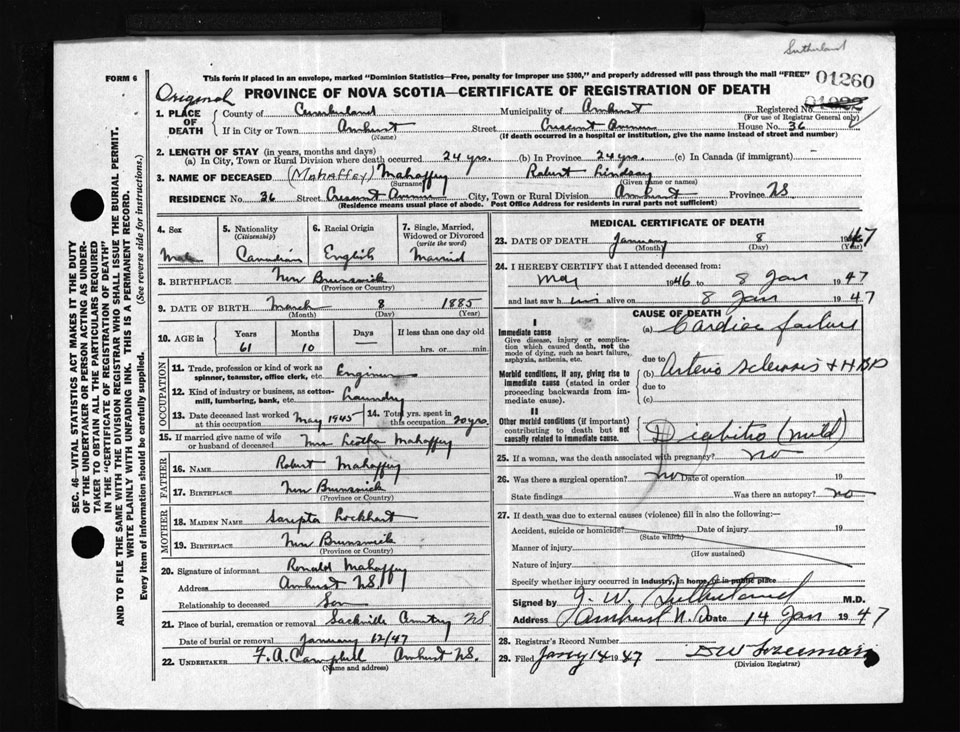 Sutherland
FORM 6
This form if placed in an envelope, marked "Dominion Statistics—Free, penalty for improper use $300," and properly addressed will pass through the mail "FREE"
01260
Original PROVINCE OF NOVA SCOTIA—CERTIFICATE OF REGISTRATION OF DEATH
1. PLACE OF DEATH
County of Cumberland Municipality of Amherst Registered No.
(For use of Registrar General only)
If in City or Town Amherst Street Crescent Avenue House No. 36
(Name) (If death occurred in a hospital or institution, give the name instead of street and number)
2. LENGTH OF STAY (in years, months and days)
(a) In City, Town or Rural Division where death occurred 24 yrs. (b) In Province 24 yrs. (c) In Canada (if immigrant)
3. NAME OF DECEASED (Mahaffey) Mahaffey Robert Lindsay
(Surname) (Given name or names)
RESIDENCE No. 36 Street Crescent Avenue City, Town or Rural Division Amherst Province NS
(Residence means usual place of abode. Post Office Address for residents in rural parts not sufficient)
4. Sex
Male
5. Nationality
(Citizenship)
Canadian
6. Racial Origin
English
7. Single, Married, Widowed or Divorced
(write the word)
Married
8. BIRTHPLACE New Brunswick
(Province or Country)
9. DATE OF BIRTH March 8 1885
(Month) (Day) (Year)
10. AGE in
Years Months Days If less than one day old
61 10 — hrs. or min.
OCCUPATION
11. Trade, profession or kind of work as spinner, teamster, office clerk, etc. Engineer
12. Kind of industry or business, as cotton-mill, lumbering, bank, etc. Laundry
13. Date deceased last worked at this occupation May 1945
14. Total yrs. spent in this occupation 20 yrs.
15. If married give name of wife or husband of deceased Mrs Leotha Mahaffey
FATHER
16. NAME Robert Mahaffey
17. BIRTHPLACE New Brunswick
(Province or Country)
MOTHER
18. MAIDEN NAME Sarepta Lockhart
19. BIRTHPLACE New Brunswick
(Province or Country)
20. Signature of informant Ronald Mahaffey
Address Amherst NS.
Relationship to deceased Son
21. Place of burial, cremation or removal Sackville Cemetery NS
Date of burial or removal January 12/47
22. UNDERTAKER F. A. Campbell Amherst NS.
(Name and address)
MEDICAL CERTIFICATE OF DEATH
23. DATE OF DEATH January 8 1947
(Month) (Day) (Year)
24. I HEREBY CERTIFY that I attended deceased from:
May 1946 to 8 Jan 1947
and last saw him alive on 8 Jan 1947
CAUSE OF DEATH
I
Immediate cause
Give disease, injury or complication which caused death, not the mode of dying, such as heart failure, asphyxia, asthenia, etc.
(a) Cardiac failure
due to
Morbid conditions, if any, giving rise to immediate cause (stated in order proceeding backwards from immediate cause).
(b) Arterio sclerosis + HBP
due to
(c)
II
Other morbid conditions (if important) contributing to death but not causally related to immediate cause.
Diabetes (mild)
25. If a woman, was the death associated with pregnancy? no
26. Was there a surgical operation? no Date of operation 19
State findings Was there an autopsy? no
27. If death was due to external causes (violence) fill in also the following:—
Accident, suicide or homicide? Date of injury 19
(State which)
Manner of injury
(How sustained)
Nature of injury
Specify whether injury occurred in industry, in home, or in public place
Signed by J. W. Sutherland M.D.
Address Amherst N.S. Date 14 Jan 1947
28. Registrar's Record Number
29. Filed Jany 14 1947
(Division Registrar)
SEC. 46—VITAL STATISTICS ACT MAKES IT THE DUTY OF THE UNDERTAKER OR PERSON ACTING AS UNDERTAKER TO OBTAIN ALL THE PARTICULARS REQUIRED IN THE "CERTIFICATE OF REGISTRATION OF DEATH" AND TO FILE THE SAME WITH THE DIVISION REGISTRAR WHO SHALL ISSUE THE BURIAL PERMIT.
WRITE PLAINLY WITH UNFADING INK. THIS IS A PERMANENT RECORD.
Every item of information should be carefully supplied. (See reverse side for instructions.)